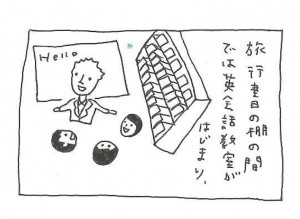 旅行書の棚の間
では英会話教室が
はじまり、
Hello